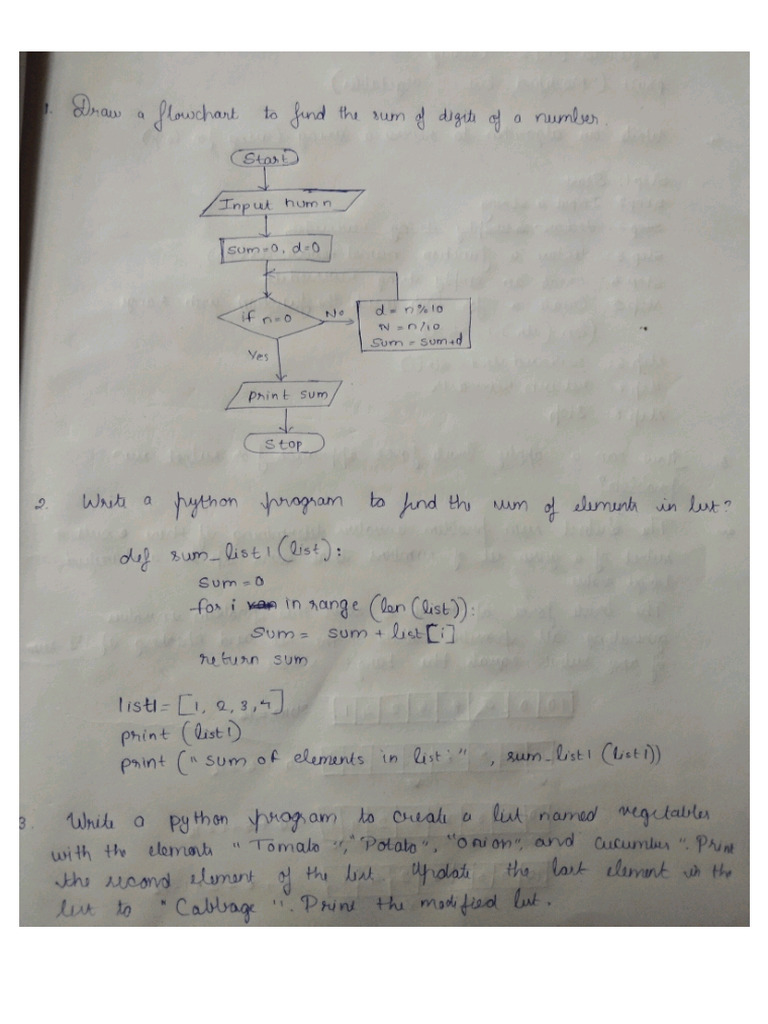 1. Draw a flowchart to find the sum of digits of a number.
Start
Input num n
sum=0, d=0
if n=0
No
d = n%10
N = n/10
Sum = sum+d
Yes
print sum
Stop
2. Write a python program to find the sum of elements in list?
def sum_list1(list):
sum=0
for i in range (len(list)):
sum = sum + list[i]
return sum
list1= [1, 2, 3, 4]
print (list1)
print ("sum of elements in list:" , sum_list1 (list1))
3. Write a python program to create a list named vegetables
with the elements "Tomato", "Potato", "onion", and cucumber". Print
the second element of the list. Update the last element in the
list to "Cabbage". Print the modified list.